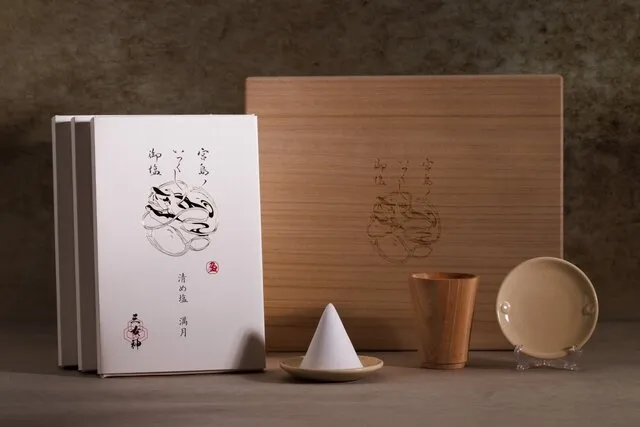 宮島ノ
いつくし
御塩
清め塩 満月
三女神
宮島ノ
いつくし
御塩